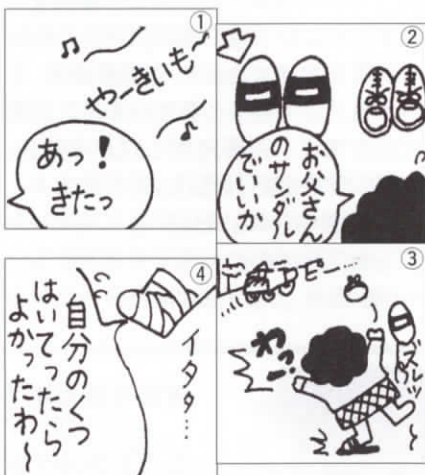 ①
やーきいも〜
あっ!
きたっ
②
お父さん
のサンダル
でいいか
③
ピー…
わっ
ズルッ〜
④
イタタ…
自分のくつ
はいてったら
よかったわ〜